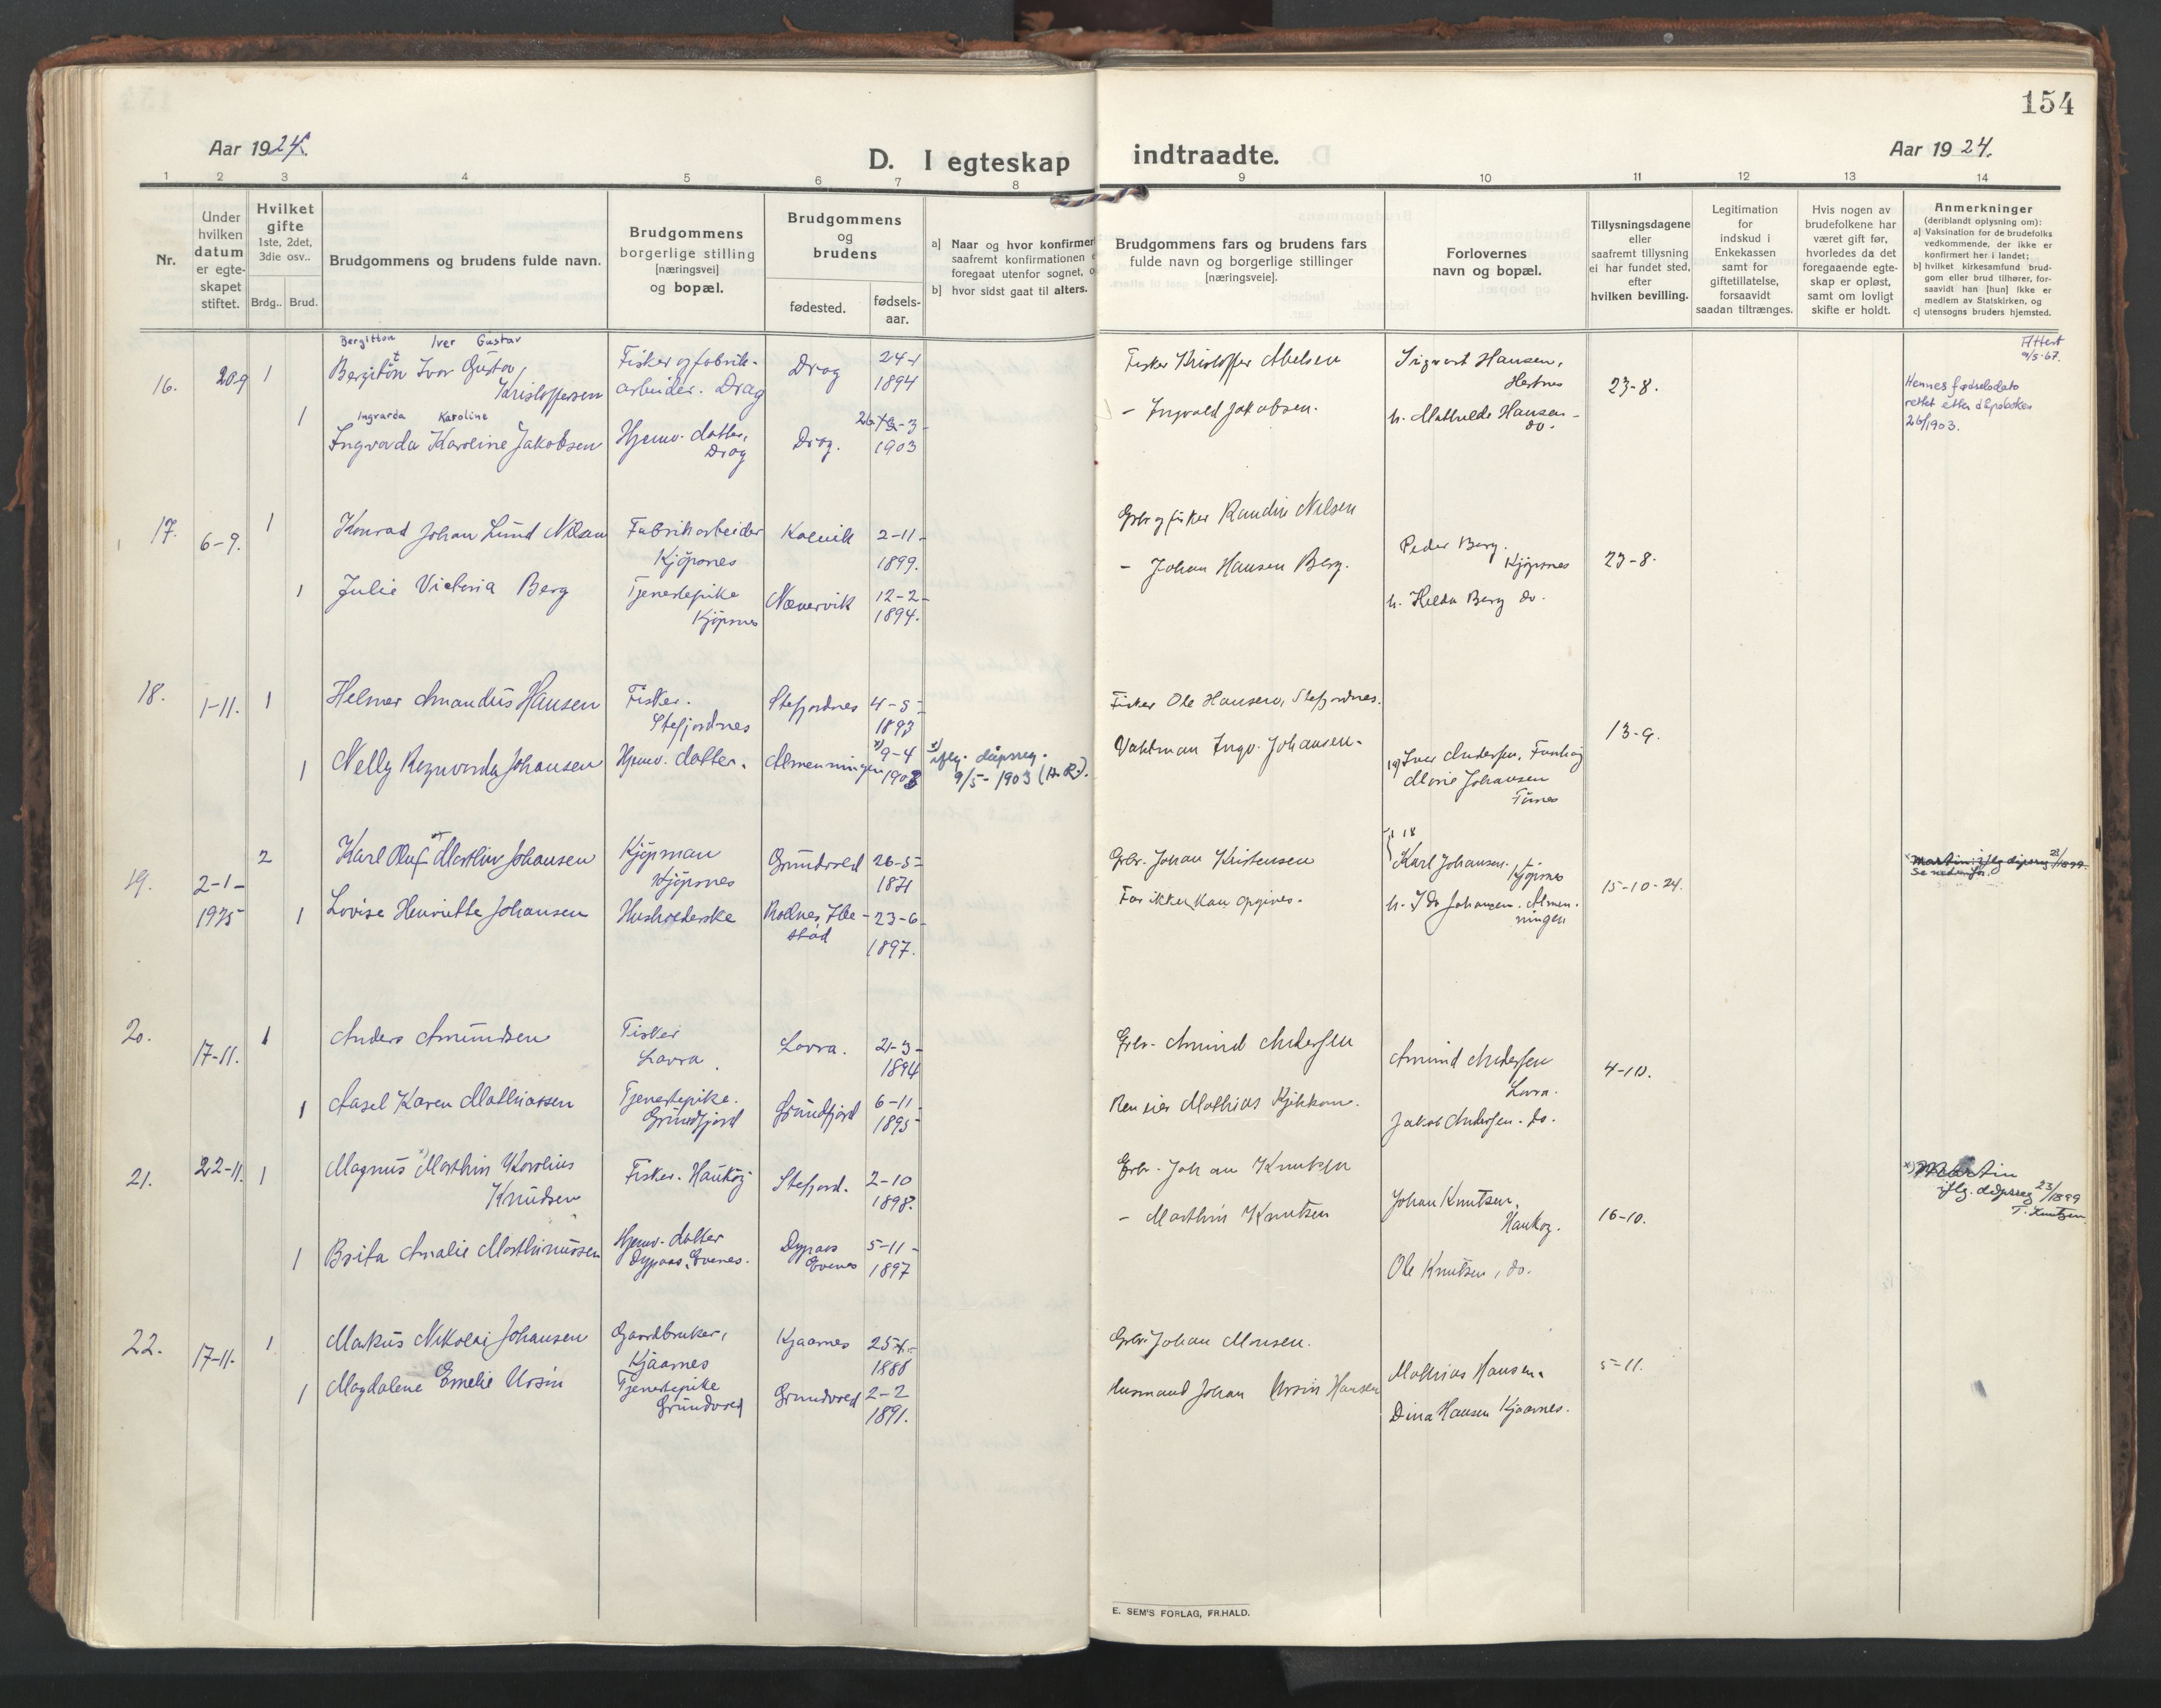 154
Aar 1924.
D. I egteskap
indtraadte.
Aar 1924.
1 2 3 4 5 6 7 8
9 10 11 12 13 14
Nr.
Under
hvilken
datum
er egte-
skapet
stiftet.
Hvilket
gifte
1ste, 2det,
3die osv..
Brdg.. Brud.
Brudgommens og brudens fulde navn.
Brudgommens
borgerlige stilling
[næringsvei]
og bopæl.
Brudgommens
og
brudens
fødested.
fødsels-
aar.
a] Naar og hvor konfirmer
saafremt konfirmationen
foregaat utenfor sognet, o
b] hvor sidst gaat til alters.
Brudgommens fars og brudens fars
fulde navn og borgerlige stillinger
[næringsveie].
Forlovernes
navn og bopæl.
Tillysningsdagene
eller
saafremt tillysning
ei har fundet sted,
efter
hvilken bevilling.
Legitimation
for
indskud i
Enkekassen
samt for
giftetillatelse,
forsaavidt
saadan tiltrænges.
Hvis nogen av
brudefolkene har
været gift før,
hvorledes da det
foregaaende egte-
skap er opløst,
samt om lovligt
skifte er holdt.
Anmerkninger
(deriblandt oplysning om):
a] Vaksination for de brudefolks
vedkommende, der ikke er
konfirmert her i landet;
b] hvilket kirkesamfund brud-
gom eller brud tilhører, for-
saavidt han [hun] ikke er
medlem av Statskirken, og
c] utensogns bruders hjemsted.
16.
20-9
1
Bergitton Iver Gustav
Bergiton Ivor Gustav,
Kristoffersen
Fisker og fabrik-
arbeider. Drag
Drag
24-1
1894
Fisker Kristoffer Abelsen
Sigvart Hansen,
Hestnes
23-8.
Attest
9/5-67.
1
Ingvarda Karoline
Ingvarda Karoline Jakobsen
Hjemv. datter,
Drag
Drag.
26 -3-
1903
- Ingvald Jakobsen.
h. Mathilde Hansen -
do.
Hennes fødselsdato
rettet etter dåpsboken
1903.
17.
6-9.
1
Konrad Johan Lund Nilsen
Fabrikarbeider
Kjöpsnes
Kalvik
2-11-
1899.
Grbr og fisker Randin Nilsen
Peder Berg.
Kjöpsnes
23-8.
1
Julie Victoria Berg
Tjenestepike
Kjöpsnes
Nævervik
12-2-
1894.
- Johan Hansen Berg.
h. Hilda Berg do.
18.
1-11.
1
Helmer Amandus Hansen
Fisker.
Stefjordnes
Stefjordnes
4-5-
1893
Fisker Ole Hansen, Stefjordnes.
13-9.
1
Nelly Regnvarda Johansen
Hjemv. datter.
Almenningen
x) 9-4
1903
x) iflg. dåpsreg.
9/5-1903 (A.R.).
Vaktman Ingv. Johansen.
Iver Andersen,
Marie Johansen
19.
2-1-
1925
2
Karl Oluf Marthin Johansen
Kjöpman
Kjöpsnes
Grundvred
26-5-
1871
Grbr. Johan Kristensen
18
Karl Johansen.
Kjöpsnes
15-10-24.
1
Lovise Henriette Johansen
Husholderske
Rollnes, Ibe-
stad
23-6-
1897.
Far ikke kan opgives.
h. Ida Johansen. Almen-
ningen
Martin: iflg dåpsreg 1899.
Se nedenfor
20.
17-11.
1
Anders Amundsen
Fisker
Lovra.
Lovra.
21-3-
1894
Grbr. Amund Andersen
Amund Andersen
Lovra.
4-10.
1
Aasel Karen Mathiassen
Tjenestepike.
Grundfjord
Grundfjord
6-11
1895
Ren eier Mathias Kjikkom.
Jakob Andersen. do.
21.
22-11.
1
Magnus x) Marthin Karolius
Knudsen
Fisker. Haukøj
Stefjord.
2-10
1898.
Grbr. Johan Knutsen
Johan Knutsen,
Haukøy.
16-10.
x) Martin
iflg. dåpsreg 23/1899
T. Knutzen.
1
Brita Amalie Marthinussen
Hjemv. datter
Dypaas, Evenes.
Dypaas
Evenes
5-11-
1897
- Marthin Knutsen
Ole Knutsen, do.
22.
17-11.
1
Makus Nikolai Johansen
Gaardbruker,
Kjaarnes
Kjaarnes
1888
Grbr. Johan Monsen.
Mathias Hansen.
5-11.
1
Magdalene Emelie Ursin
Tjenestepike
Grundvred
Grundvred
2-2
1891.
Husmand Johan Ursin Hansen
Dina Hansen Kjaarnes.
E. SEM'S FORLAG, FR.HALD.